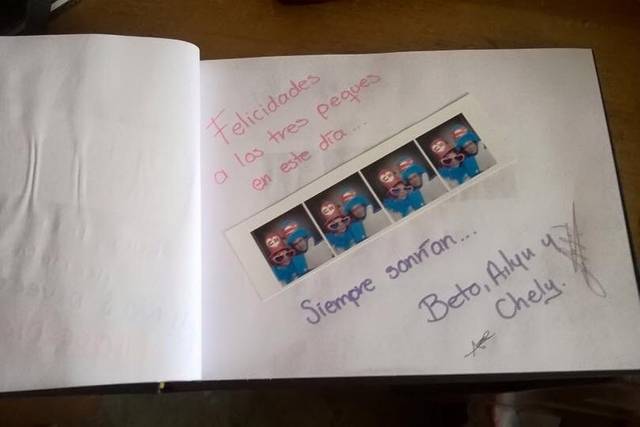 Felicidades
a los tres peques
en este día...
Siempre sonrían...
Beto, Ailyn y
Chely.